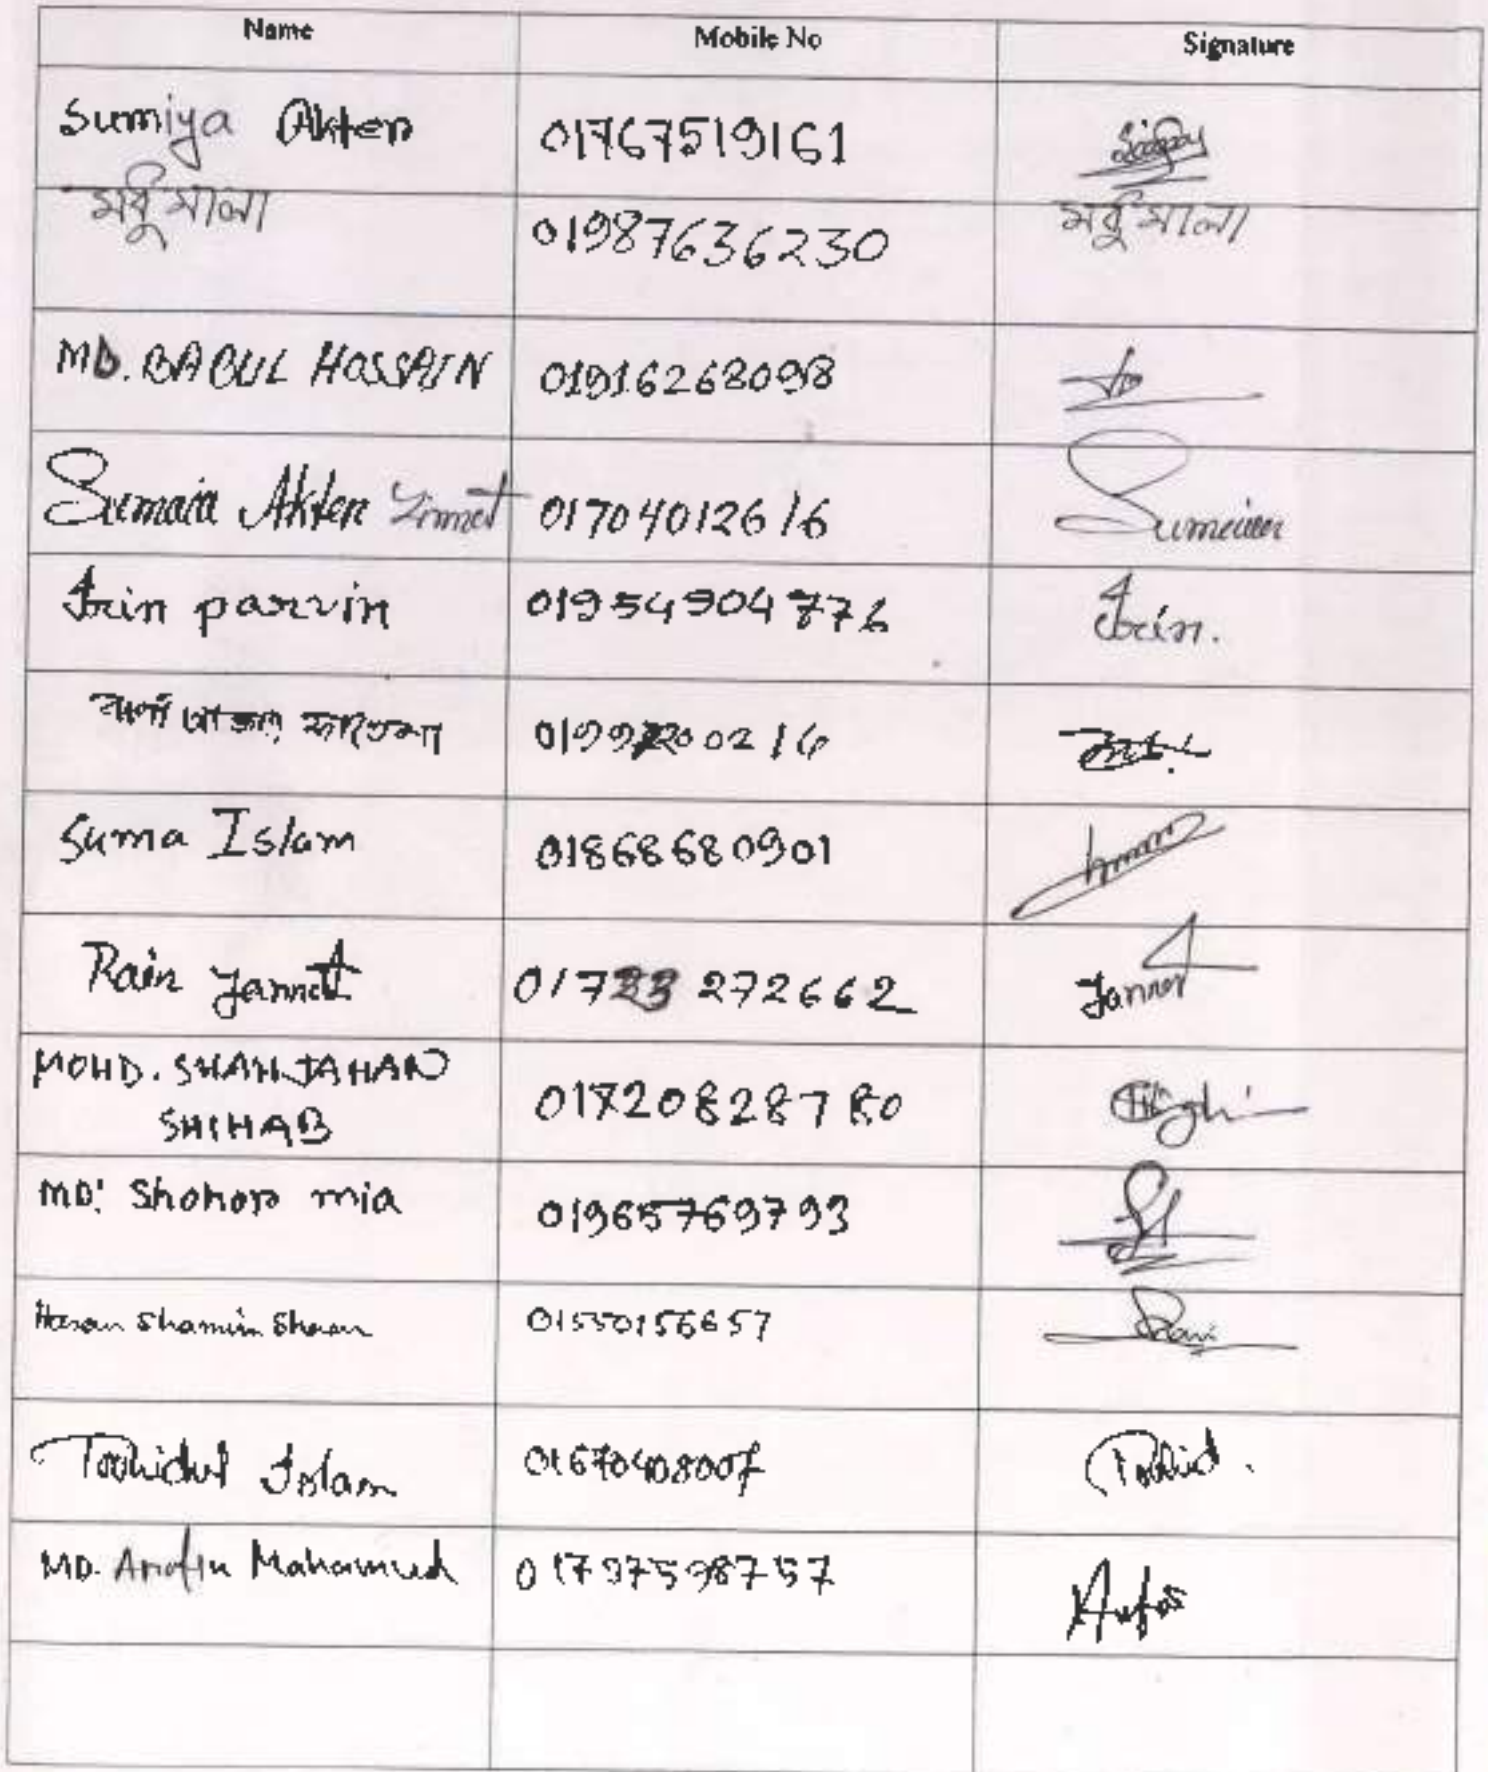 Name Mobile No Signature
Sumiya Akter 01767519161
মধুমালা 01987636230 মধুমালা
MD. BABUL HOSSAIN 01916268098
Sumaia Akter Jinnat 01704012616 Sumaiea
Irin parvin 01954904776 Irin.
Suma Islam 01868680901
Rain Jannat 01733272662 Jannat
MOHD. SHAHJAHAN
SHIHAB 01720828780
MD: Shohor mia 01965769793
Hasan Shamim 01550156657
Touhidul Islam 01670408007 Touhid.
MD. Arafin Mahamud 01797598757